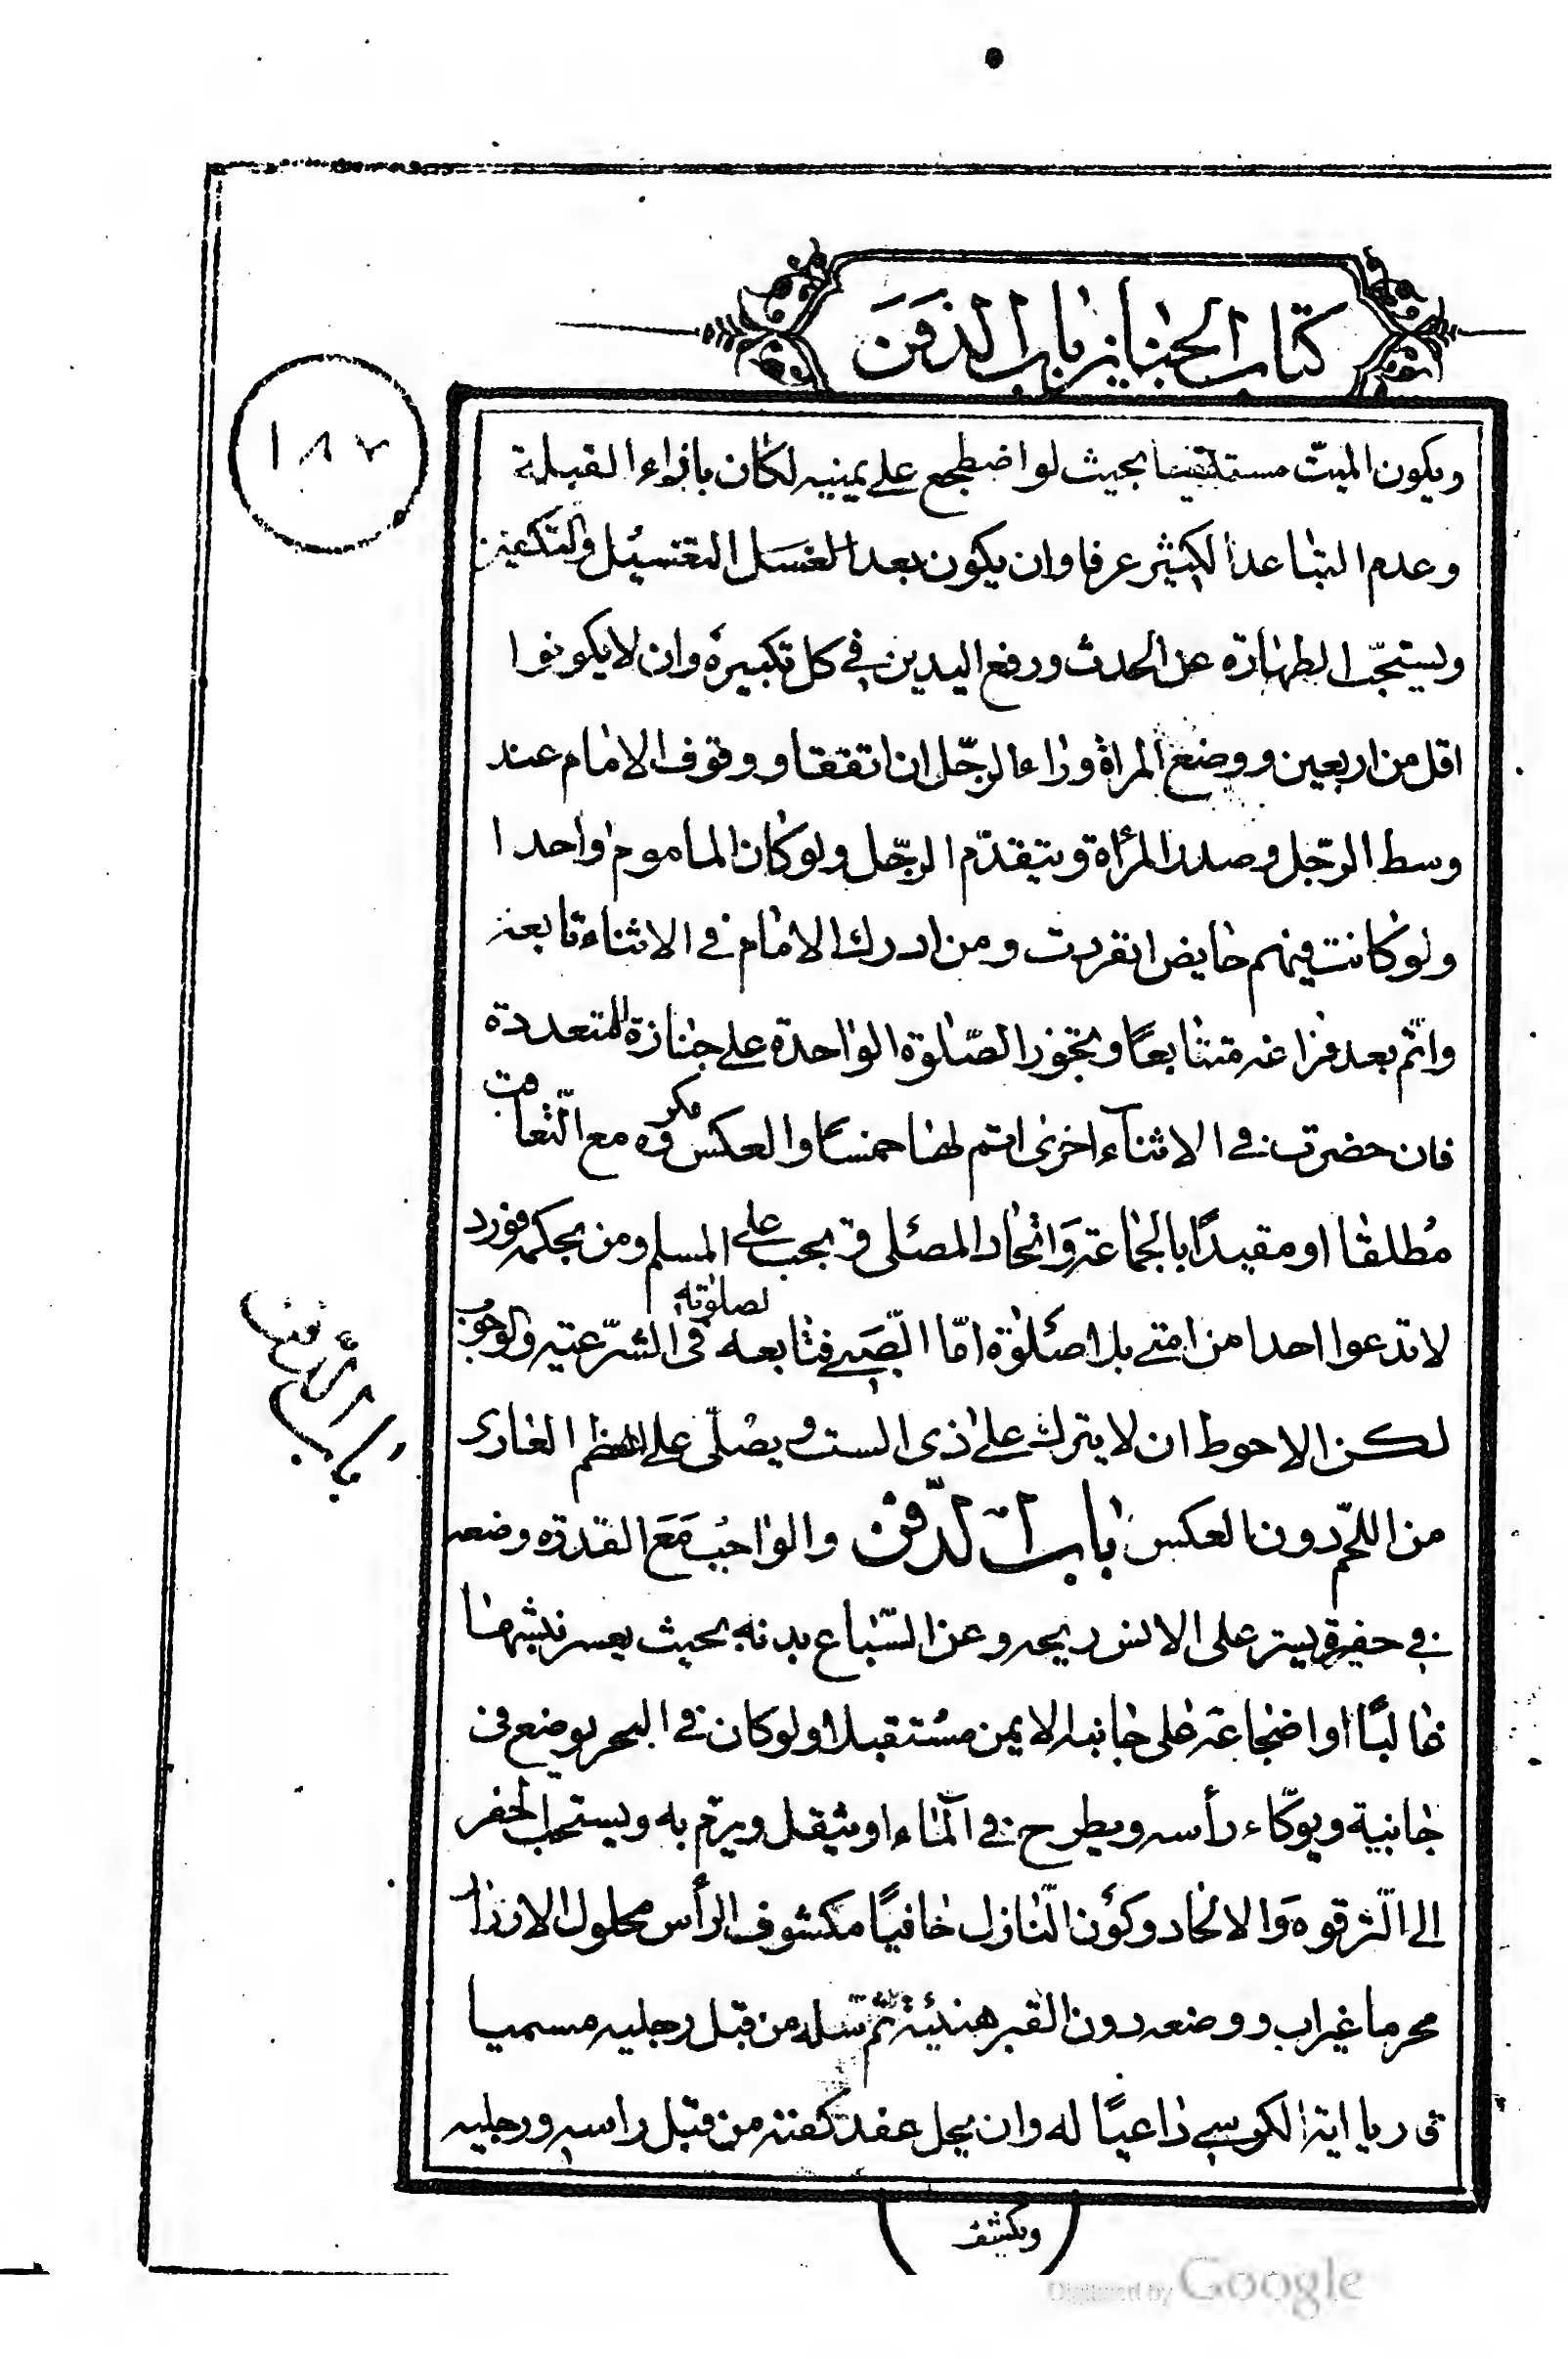 كتاب الجنايز باب الدفن
١٨٧
ويكون الميّت مستلقيا بحيث لو اضطجع على يمينه لكان بازاء القبلة
وعدم التباعد الكثير عرفا وان يكون بعد الغسل التغسيل والتكفين
ويستحبّ الطهارة عن الحدث ورفع اليدين في كل تكبيرة وان لا يكونوا
اقل من اربعين ووضع المراة وراء الرجّل ان اتفقتا ووقوف الامام عند
وسط الرجّل وصدر المرأة ويتقدّم الرجّل ولو كان الماموم واحدا
ولو كانت فيهم حايض انفردت ومن ادرك الامام في الاثناء تابعه
واتم بعد فراغه متتابعًا وتجوز الصّلوة الواحدة على جنازة المتعددة
فان حضرت في الاثناء اخرى اتم لها خمسًا والعكس مكروه مع التّعاقب
مُطلقا او مقيدًا بالجماعة وَاتحاد المصلى و يجب على المسلم ومن بحكمه فورد
لا تدعوا احدا من امتى بلا صلوة امّا الصّبي فتابعه لصلوته في الشرّعيّة والوجوب
لكن الاحوط ان لا يترك على ذى الست ويصُلّى على العظم العارى
من اللّحم دون العكس باب الدّفن والواجبُ مَعَ القدرة وضعه
في حفيرة يستر على الانس ريحه وعن السّباع بدنه بحيث يعسر نبشها
غالبًا واضجاعه على جانبه الايمن مسُتقبلا ولو كان في البحر يوضع في
خابية ويوكّاء رأسه ويطرح في المآء او يثقل ويرم به ويستحب الحفر
الى الترّقوه وَالالحاد وكون النّازل حافيًا مكشوف الرأس محلول الازرار
محرما غير اب ووضعه دون القبر هنيئة ثم سّله من قبل رجليه مسميا
قاريا اية الكرسي داعيًا له وان يحل عقد كفنه من قبل راسه ورجليه
باب الدّفن
ويكشف
Digitized by Google